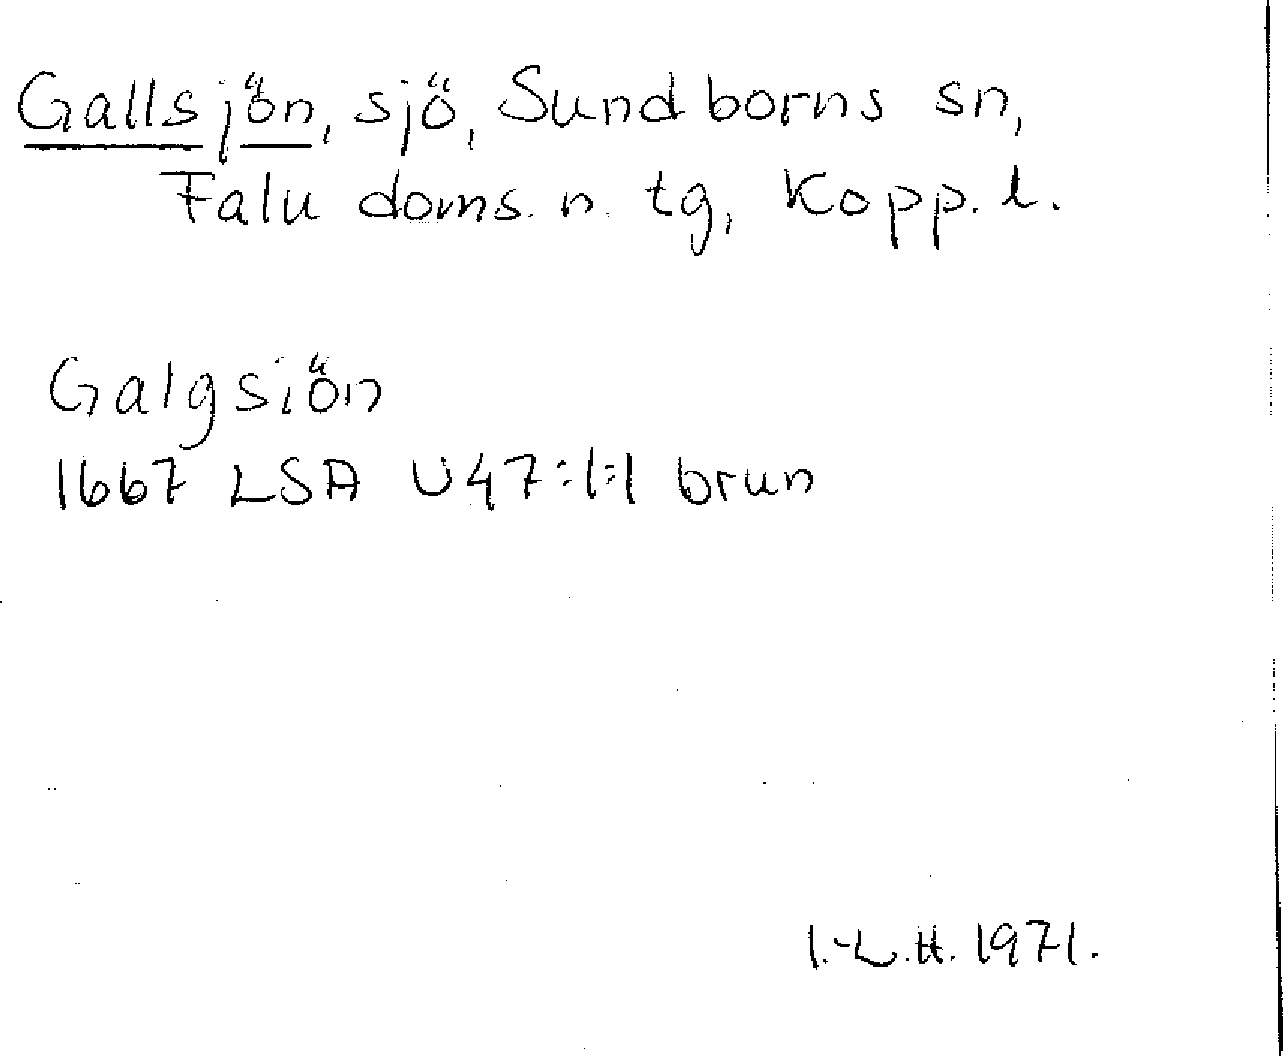 Gallsjön, sjö, Sundborns sn,
Falu doms. n. tg, Kopp. l.
Galgsiön
1667 LSA U47:1:1 brun
I.-L.H. 1971.